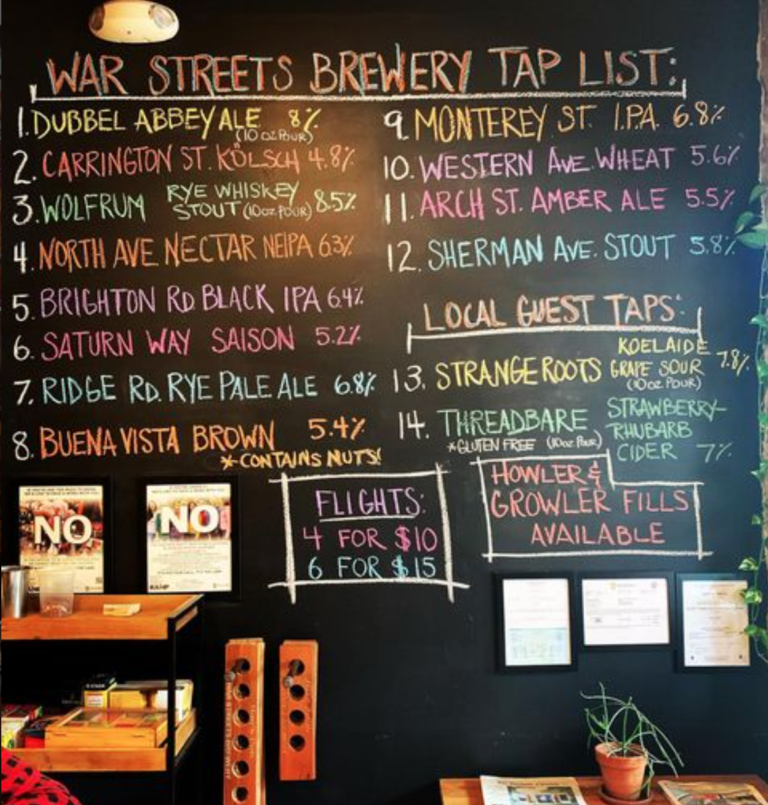 WAR STREETS BREWERY TAP LIST:
1. DUBBEL ABBEY ALE 8%
(10 oz POUR)
2. CARRINGTON ST. KÖLSCH 4.8%
3. WOLFRUM RYE WHISKEY
STOUT (10oz POUR) 8.5%
4. NORTH AVE NECTAR NEIPA 6.3%
5. BRIGHTON RD BLACK IPA 6.4%
6. SATURN WAY SAISON 5.2%
7. RIDGE RD. RYE PALE ALE 6.8%
8. BUENA VISTA BROWN 5.4%
*CONTAINS NUTS!
9. MONTEREY ST. I.P.A. 6.8%
10. WESTERN AVE. WHEAT 5.6%
11. ARCH ST. AMBER ALE 5.5%
12. SHERMAN AVE. STOUT 5.8%
LOCAL GUEST TAPS:
13. STRANGE ROOTS KOELAIDE
GRAPE SOUR 7.8%
(10oz POUR)
14. THREADBARE STRAWBERRY-
RHUBARB
*GLUTEN FREE (10oz POUR)
CIDER 7%
FLIGHTS:
4 FOR $10
6 FOR $15
HOWLER &
GROWLER FILLS
AVAILABLE
NO
NO